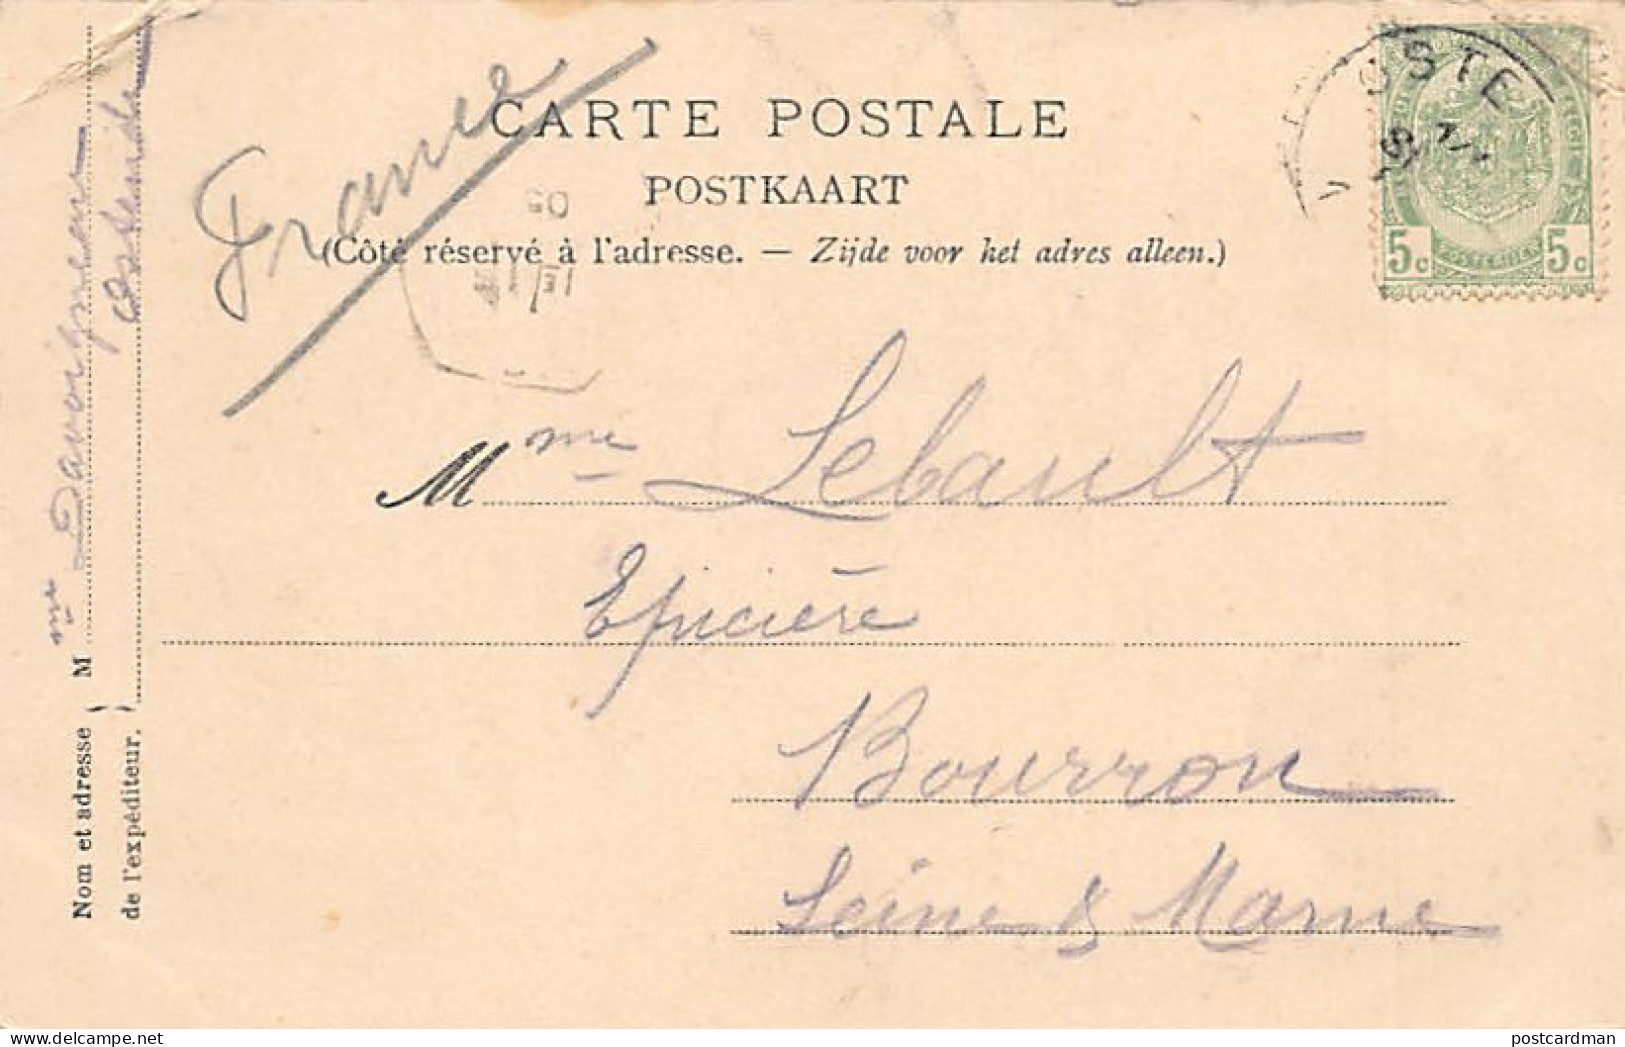 CARTE POSTALE
POSTKAART
(Côté réservé à l'adresse. — Zijde voor het adres alleen.)
France
OSTE
5c 5c
05
Mme Lebault
Epicière
Bourron
Seine & Marne
Nom et adresse
de l'expéditeur.
Mme Davoigneau
Ostende
postcardman